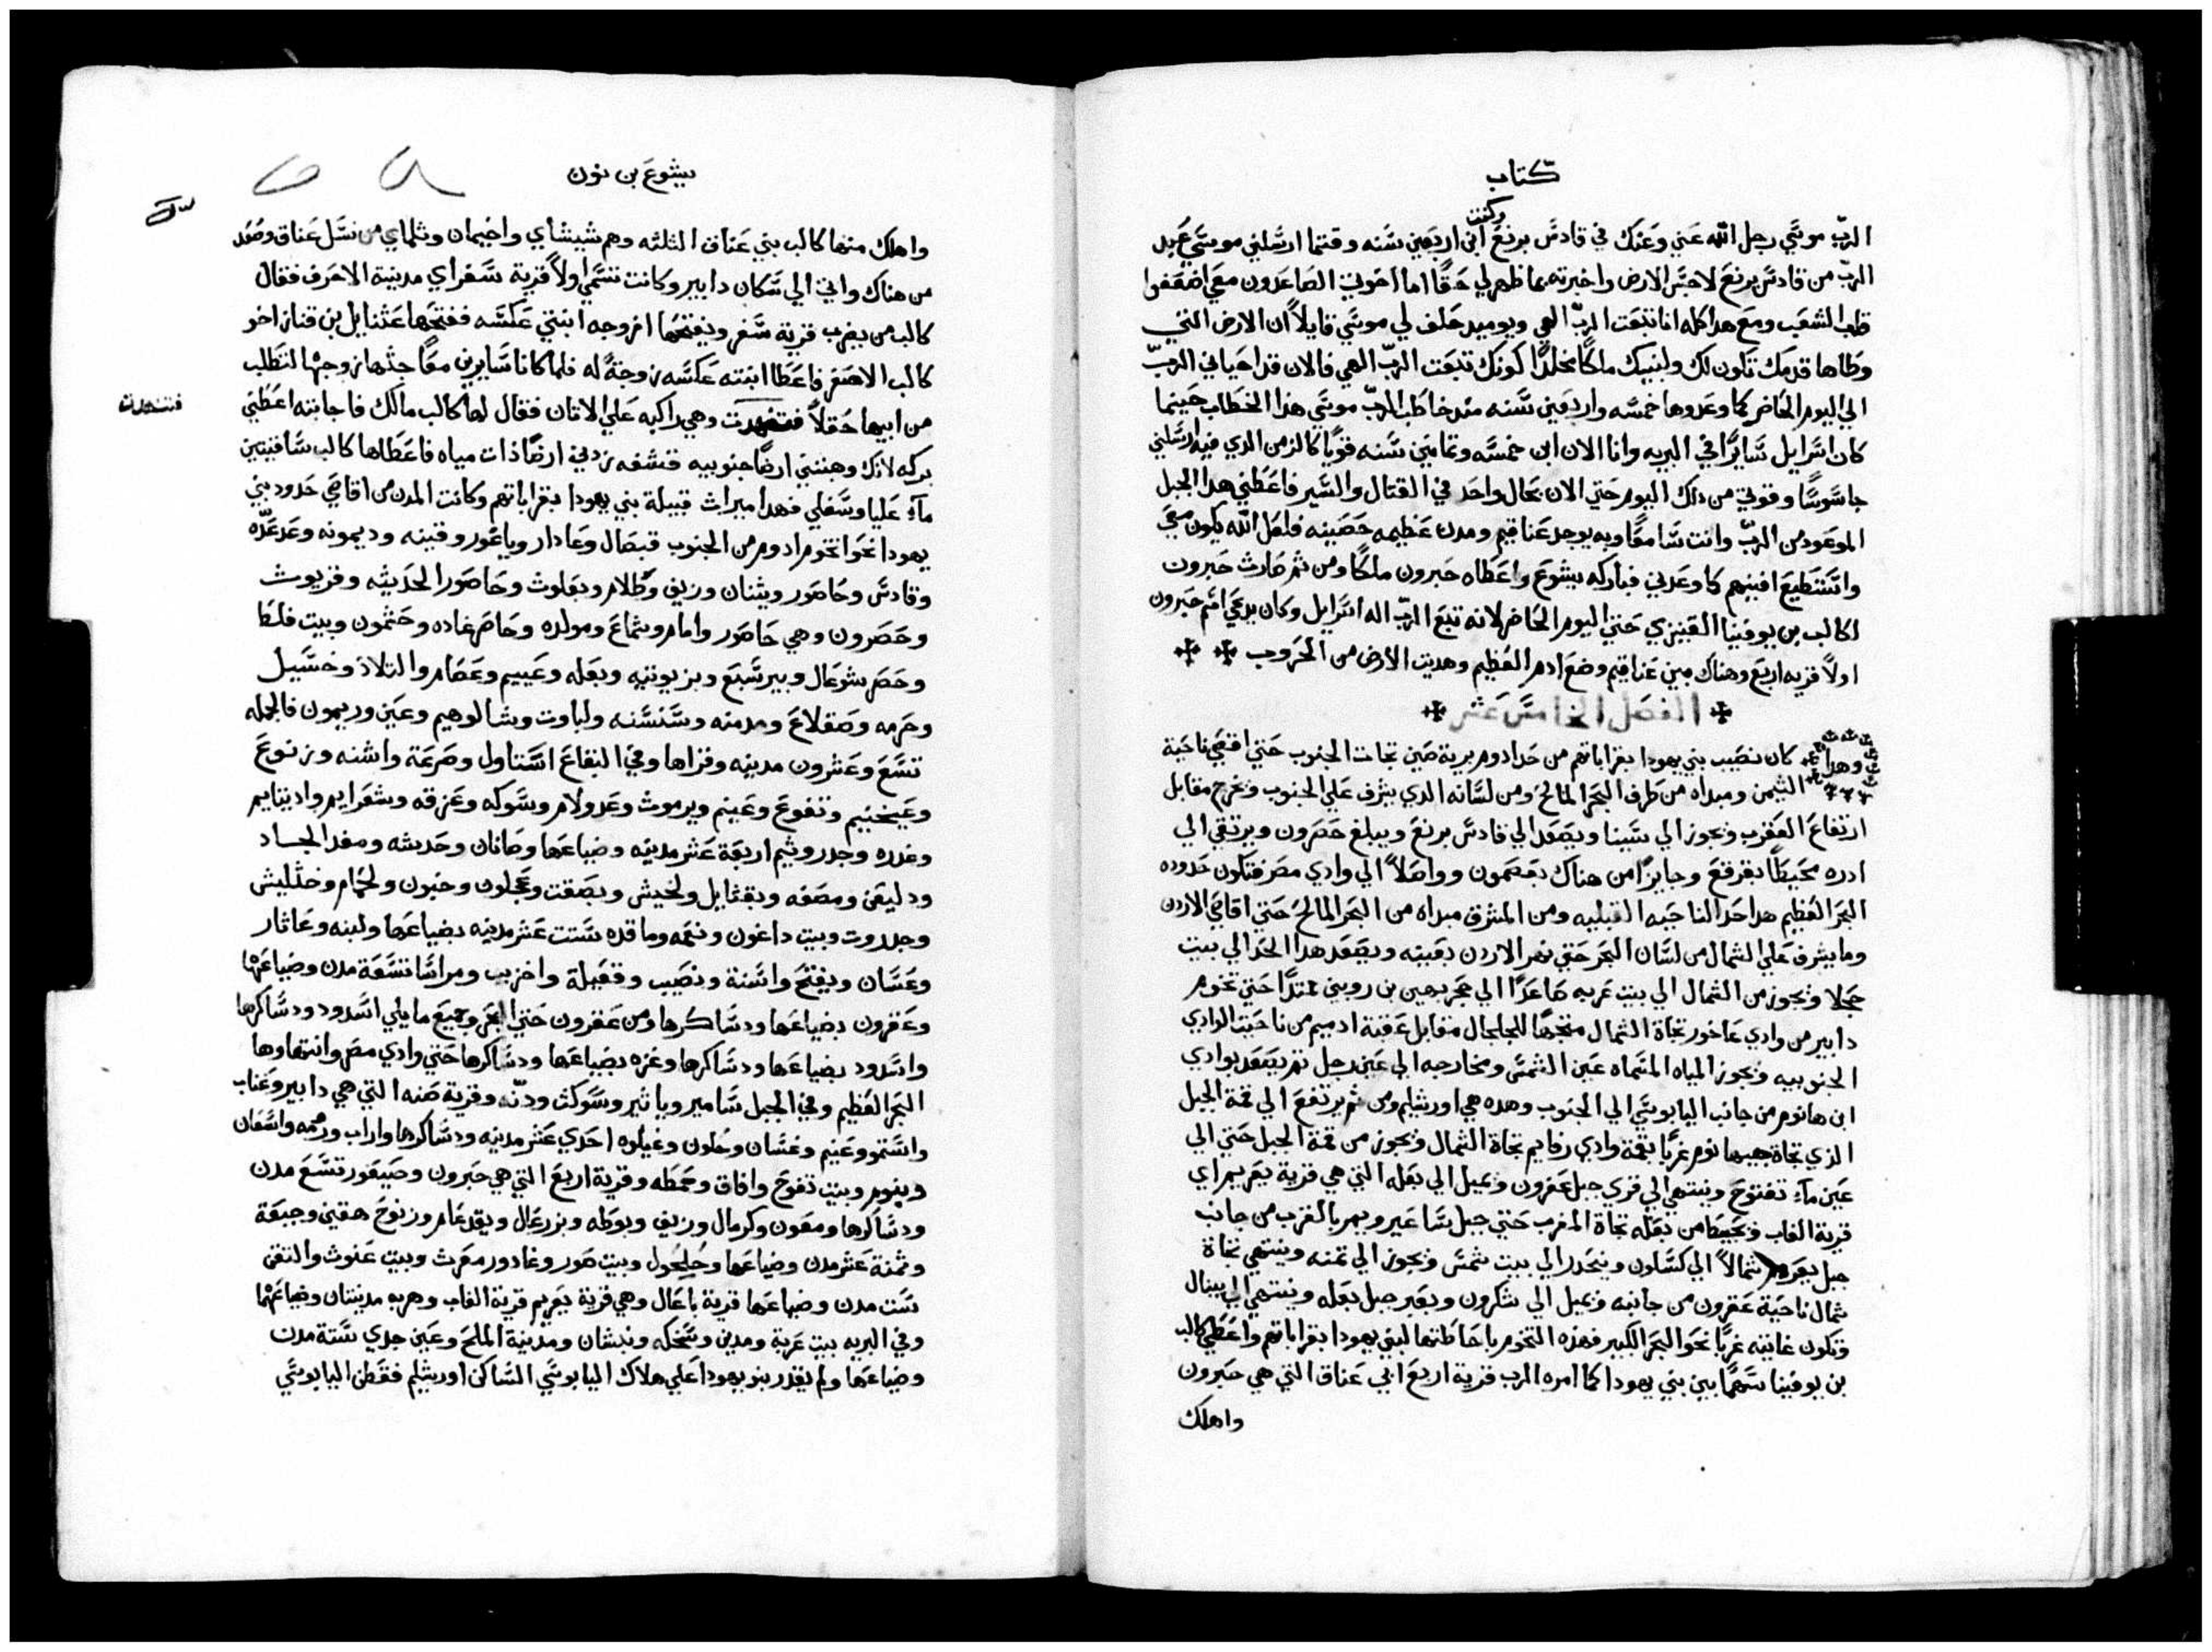 كتاب
وكنت
الربّ موسَي رجل الله عَني وعَنك في قادسَ برنعَ ابن اربَعين سَنه وقتما ارسَلني موسَي عَبد
الربّ من قادسَ برنعَ لاجسَ الارض واخبرته بما ظهر لي حَقًا اما اخوتي الصَاعَدون معَي اضعَفوا
قلب الشعَب ومعَ هدا كله انا تتبعَت الربّ الهي ويوميد حَلف لي موسَي قايلاً ان الارض التي
وطَاها قدمَك تكون لك ولبنيك ملكًا مخلدًا كونَك تبعَت الربّ الهي فالان قد احَياني الربّ
الي اليوم الحَاضر كما وعَد وها خمسَه واربعَين سَنه مند خاطَب الربّ موسَي هذا الخطَاب حَينما
كان اسَرايل سَايرًا في البريه وانا الان ابن خمسَه وثمانين سَنه قويًا كالزمن الدي فيه ارسَلني
جاسَوسًا وقوتي من دلك اليوم حَتي الان بحَال واحَد في القتال والسَير فاعَطَني هدا الجبل
الموعَود من الربّ وانت سَامعًا وبه يوجد عَناقيم ومدن عَظيمه حَصَينه فلعَل الله يكون معَي
واسَتطَيعَ افنيهم كما وعَدني فباركه يشوعَ واعَطَاه حَبرون ملكًا ومن ثم صَارت حَبرون
لكالب بن يوفينا القنيزي حَتي اليوم الحَاضر لانه تتبعَ الربّ اله اسَرايل وكان يدعَي اسَم حَبرون
اولاً قريه اربعَ وهناك بين عَناقيم وضعَ ادم العَظيم وهديت الارض من الحَروب
الفصَل الخامسَ عَشر
وهدا كان نصَيب بني يهودا بقراباتهم من حَد ادوم برية صَين تجاه الجنوب حَتي اقصَي ناحَية
التيمن ومبداه من طَرف البحَر المالح ومن لسَانه الدي يشرف عَلي الجنوب ويخرج مقابل
ارتفاعَ العَقرب ويجوز الي سَينا ويصَعَد الي قادسَ برنعَ ويبلغ حَصَرون ويرتقي الي
ادره محَيطًا بقرقعَ وجايزًا من هناك بعَصَمون وواصَلاً الي وادي مصَر فتكون حَدوده
البحَر العَظيم هدا حَد الناحَيه القبليه ومن المشرق مبداه من البحَر المالح حَتي اقاصَي الاردن
وما يشرف عَلي الشمال من لسَان البحَر حَتي نهر الاردن بعَينه ويصَعَد هدا الحَد الي بيت
حَجلا ويجوز من الشمال الي بيت عَربه صَاعَدًا الي حَجر بهين بن روبين ممتدًا حَتي تخوم
دابير من وادي عَاخور تجاة الشمال متجهًا للجلجال مقابل عَقبة ادميم من ناحَية الوادي
الجنوبيه ويجوز المياه المسَماه عَين الشمسَ ومخارجه الي عَين رجل ثم يصَعَد بوادي
ابن هانوم من جانب اليابوسَي الي الجنوب وهده هي اورشليم ومن ثم يرتفعَ الي قمة الجبل
الذي تجاة جيبهانوم غربًا بقمة وادي رفايم تجاة الشمال ويجوز من قمة الجبل حَتي الي
عَين مآء تفتوح وينتهي الي قري جبل عَفرون ويميل الي بعَله التي هي قرية يعَريم اي
قرية الغاب ويحَيطَ من بعَله تجاة المغرب حَتي جبل سَاعَير ويمر بالقرب من جانب
جبل يعَريم شمالاً الي كسَلون وينحَدر الي بيت شمسَ ويجوز الي تمنه وينتهي تجاة
شمال ناحَية عَقرون من جانبه ويميل الي شكرون ويعَبر جبل بعَله وينتهي الي يبنال
وتكون غايته غربًا نحَو البحَر الكبير فهذه التخوم باحَاطَتها لبني يهودا بقراباتهم واعَطَي كالب
بن يوفينا سَهمًا بين بني يهودا كما امره الرب قرية اربعَ ابي عَناق التي هي حَبرون
واهلك
يشوعَ بن نون
واهلك منها كالب بني عَناق الثلثه وهم شيشاي واخيمان وثلماي من نسَل عَناق وصَعَد
من هناك واتي الي سَكان دابير وكانت تسَمي اولاً قرية سَفر اي مدينة الاحَرف فقال
كالب من يضرب قرية سَفر ويفتحَها ازوجه ابنتي عَكسَه ففتحَها عَثنايل بن قناز اخو
كالب الاصَغر فاعَطَا ابنته عَكسَه زوجةً له فلما كانا سَايرين معًا حَثها زوجها لتطَلب
من ابيها حَقلاً فتنهدت وهي راكبه عَلي الاتان فقال لها كالب مالك فاجابته اعَطَني
فتنهدت
بركه لانك وهبتني ارضًا جنوبيه قشفه زدني ارضًا ذات مياه فاعَطَاها كالب سَاقيتين
مآء عَليا وسَفلي فهدا ميراث قبيلة بني يهودا بقراباتهم وكانت المدن من اقاصَي حَدود بني
يهودا نحَو تخوم ادوم من الجنوب قبصَال وعَادار وياغور وقينه وديمونه وعَدعَدّه
وقادسَ وحَاصَور ويثنان وزيف وطَلام وبعَلوث وحَاصَور الحَديثه وقريوث
وحَصَرون وهي حَاصَور وامام وشماعَ ومولده وحَاصَر غاده وحَشمون وبيت فلطَ
وحَصَر شوعَال وبير سَبعَ وبزيوتيه وبعَله وعَييم وعَصَام والتلاد وخسَيل
وحَرمه وصَقلاعَ ومدمنه وسَنسَنه ولباوت وشالوهيم وعَين وريمون فالجمله
تسَعَ وعَشرون مدينه وقراها وفي البقاعَ اسَتاول وصَرعَة واشنه وزنوعَ
وعَينجنيم وتفوعَ وعَينم ويرموث وعَدولام وسَوكه وعَزقه وشعَرايم واديتايم
وغدره وجدروثيم اربعَة عَشر مدينه وضياعَها وصَانان وحَدشه ومغدالجاد
ودليعَن ومصَفه ويقثايل ولخيش وبصَقت وعَجلون وخبون ولحَمام وخثليش
وجدروت وبيت داغون ونعَمه وماقده سَتت عَشر مدينه بضياعَها ولبنه وعَاثار
وعَسَان ويفتح واسَنة ونصَيب وقعَيلة واخزيب ومراسَا تسَعَة مدن وضياعَها
وعَقرون بضياعَها ودسَاكرها ومن عَقرون حَتي البحَر وجميعَ ما يلي اسَدود ودسَاكرها
واسَدود بضياعَها ودسَاكرها وغزه بضياعَها ودسَاكرها حَتي وادي مصَر وانتهاوها
البحَر العَظيم وفي الجبل سَامير وياثير وسَوكث ودنّه وقرية صَنه التي هي دابير وعَناب
واسَتمو وعَنيم وغسَان وحَلون وغيلوه احَدي عَشر مدينه ودسَاكرها واراب ورومه واسَعَان
وينوم وبيت تفوح وافاق وحَمطَه وقرية اربعَ التي هي حَبرون وصَيعَور تسَعَ مدن
ودسَاكرها ومعَون وكرمال وزيف ويوطَه ويزرعَال ويقدعَام وزنوحَ هقين وجبعَة
وثمنة عَشر مدن وضياعَها وحَلحَول وبيت صَور وغادور معَرث وبيت عَنوث والتقن
سَت مدن وضياعَها قرية باعَال وهي قرية يعَريم قرية الغاب وهربه مدينتان وضياعَهما
وفي البريه بيت عَربة ومدين وسَخكه ونبشان ومدينة الملح وعَين جدي سَتة مدن
وضياعَها ولم يقدر بنو يهودا عَلي هلاك اليابوسَي السَاكن اورشليم فقطَن اليابوسَي